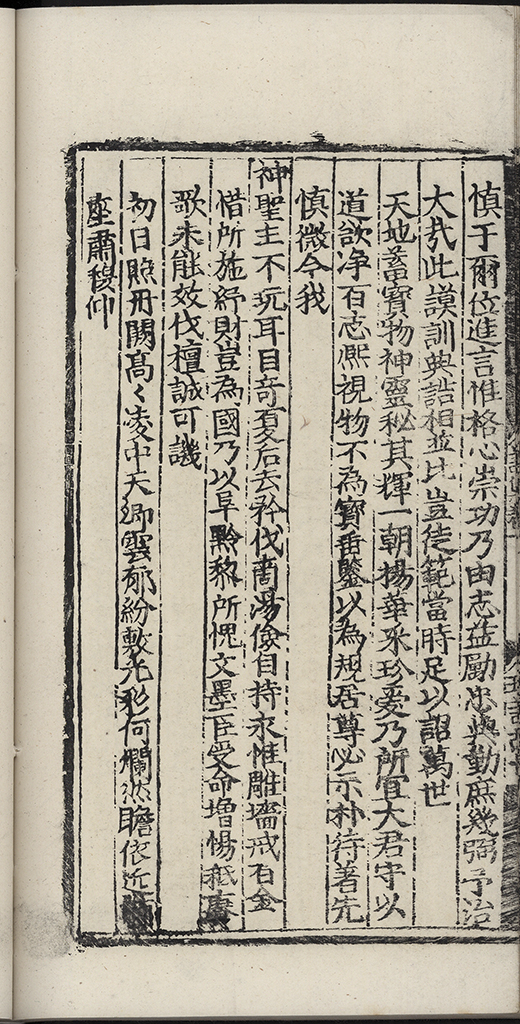 慎于爾位進言惟格心崇功乃由志益勵忠與勤庶幾弼予治
大哉此謨訓典誥相並比豈徒範當時足以詔萬世
天地蓄寶物神靈秘其輝一朝揚華采珍愛乃所宜大君守以
道欲净百志熈視物不為寶垂鑒以為規居尊必示朴待著先
慎微今我
神聖主不玩耳目奇夏后去矜伐商湯儉自持永惟雕墻戒百金
惜所施紓財豈為國乃以阜黔黎所愧文墨臣受命增惕祗賡
歌未能效伐檀誠可譏
初日照丹闕高〻凌中天卿雲郁紛敷光彩何爛然瞻依近
座肅穆仰